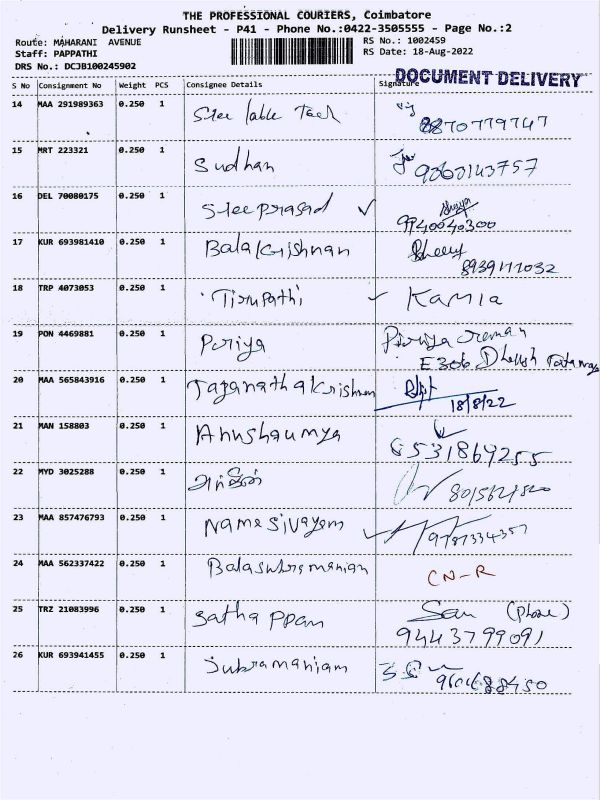 THE PROFESSIONAL COURIERS, Coimbatore
Delivery Runsheet - P41 - Phone No.:0422-3505555 - Page No.:2
Route: MAHARANI AVENUE RS No.: 1002459
Staff: PAPPATHI RS Date: 18-Aug-2022
DRS No.: DCJB100245902
DOCUMENT DELIVERY
S No Consignment No Weight PCS Consignee Details Signature
14 MAA 291989363 0.250 1 Sree lable Tech 8870779747
15 MRT 223321 0.250 1 Sudhan
16 DEL 70080175 0.250 1 Sreeprasad ✓ 9940040300
17 KUR 693981410 0.250 1 Balakrishnan 8939111032
18 TRP 4073053 0.250 1 Tirupathi ✓ Kamla
19 PON 4469881 0.250 1 Periya
E306
20 MAA 565843916 0.250 1 Jaganathakrishnan
18/8/22
21 MAN 158803 0.250 1 Anushaumya 6531869255
22 MYD 3025288 0.250 1
23 MAA 857476793 0.250 1 Namesivayam ✓ 9787334357
24 MAA 562337422 0.250 1 Balasubramanian CN-R
25 TRZ 21083996 0.250 1 Sathappan (Phone)
9443799091
26 KUR 693941455 0.250 1 Subramaniam